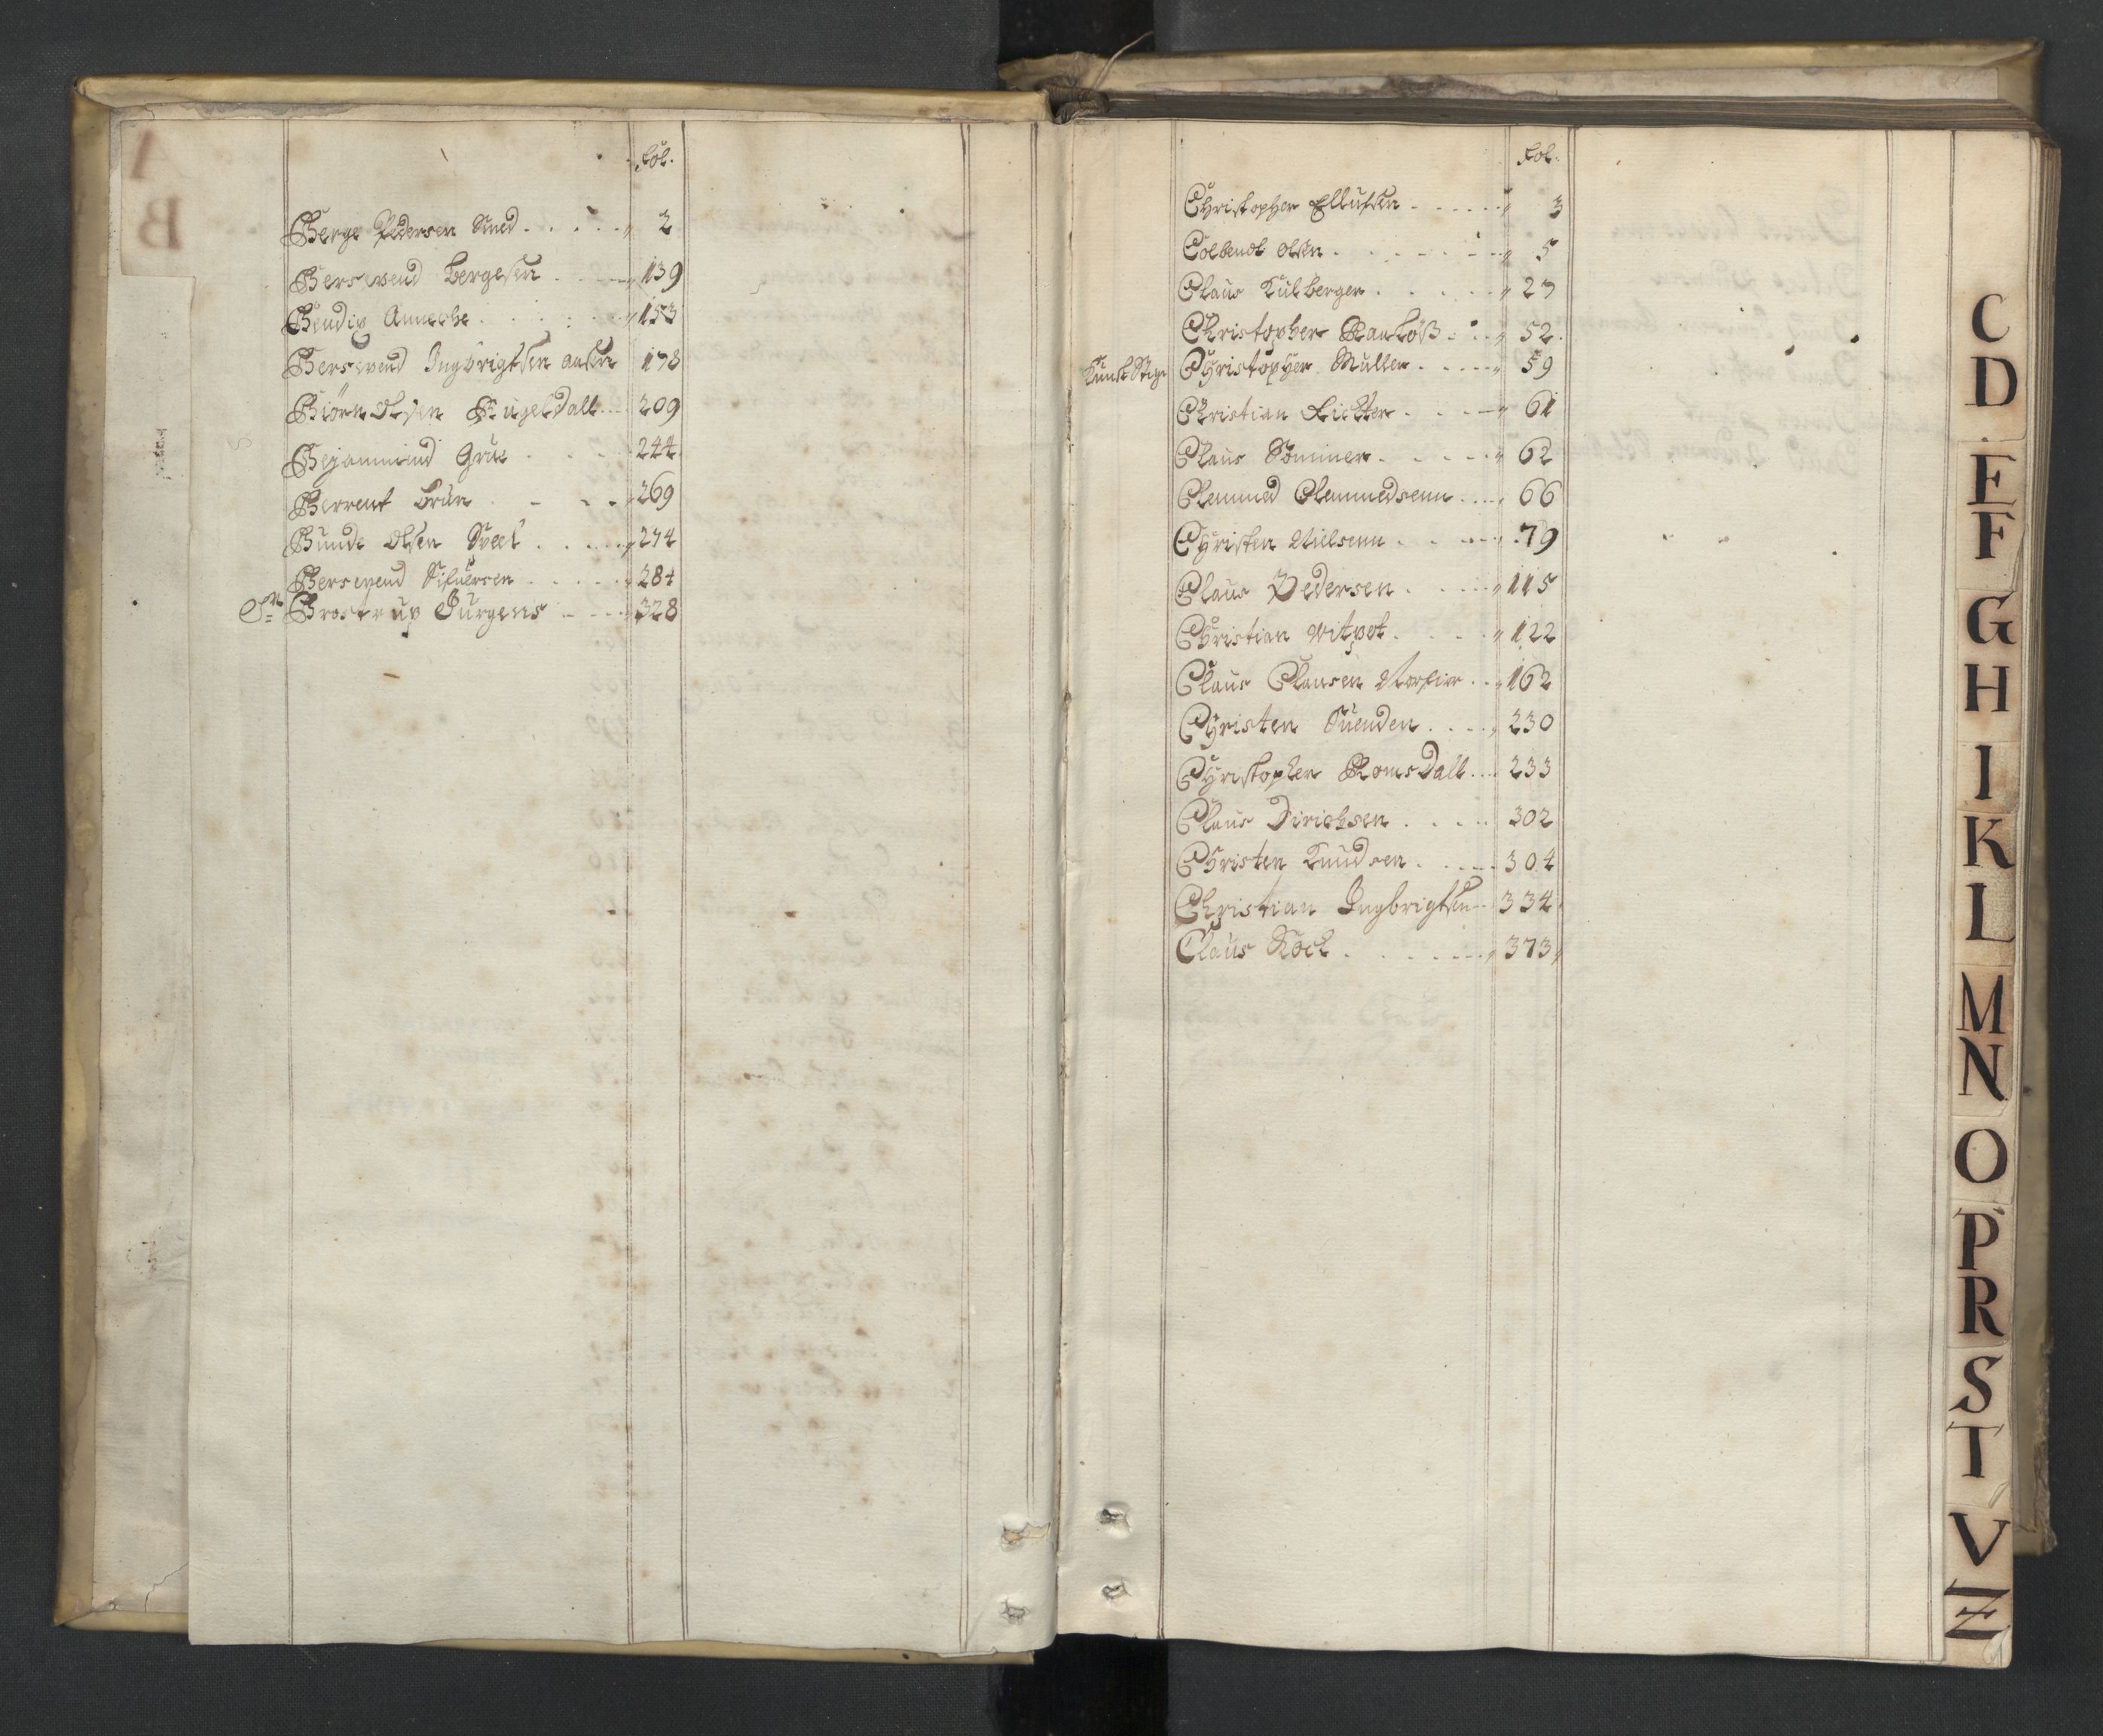 A
B
fol.
Berge Pedersen Smed 2
Berswend Bergesen 139
Bendix Anneche 153
Berswend Ingbrigtsen 178
Biörn Olsen KugelDall 209
Bejammind Grue 244
Berrent Brün 269
Bunde Olsen 274
Berswend Sifuersen 284
Sr. Brostrup Jürgens 328
fol.
Christopher Ellufsen 3
Colbent Olsen 5
Claus Külberger 27
Christopher 52
Kunst Stiger Christopher Müller 59
Christian Richter 61
Claus Sommer 62
Clemmed Clemmedsenn 66
Christen Nielsenn 79
Claus Pedersen 115
Christian Witpot 122
Claus Clausen 162
Christen Suenden 230
Christopher RomsDall 233
Claus Dirichsen 302
Christen Knudsen 304
Christian Ingbrigtsen 334
Claus Kock 373
C
D
E
F
G
H
I
K
L
M
N
O
P
R
S
T
V
Z